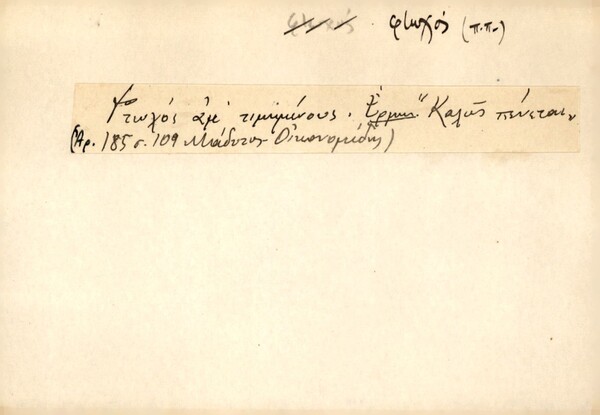 φτωχός (π.π.)
Φτωχός ἀπ' τιμημένους. Ἑρμην. "Καλῶς πένεται"
(Ἀρ. 185 σ. 109 Μάδυτος Οἰκονομίδης)